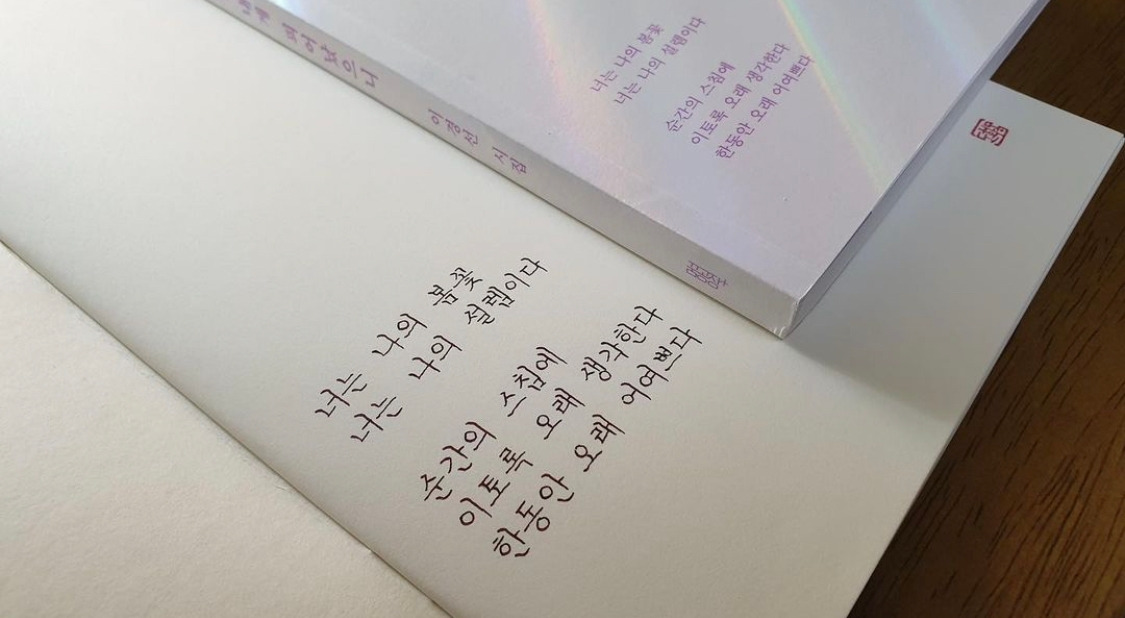 내게 피어났으니
이경선 시집
너는 나의 봄꽃
너는 나의 설렘이다
순간의 스침에
이토록 오래 생각한다
한동안 오래 어여쁘다
너는 나의 봄꽃
너는 나의 설렘이다
순간의 스침에
이토록 오래 생각한다
한동안 오래 어여쁘다